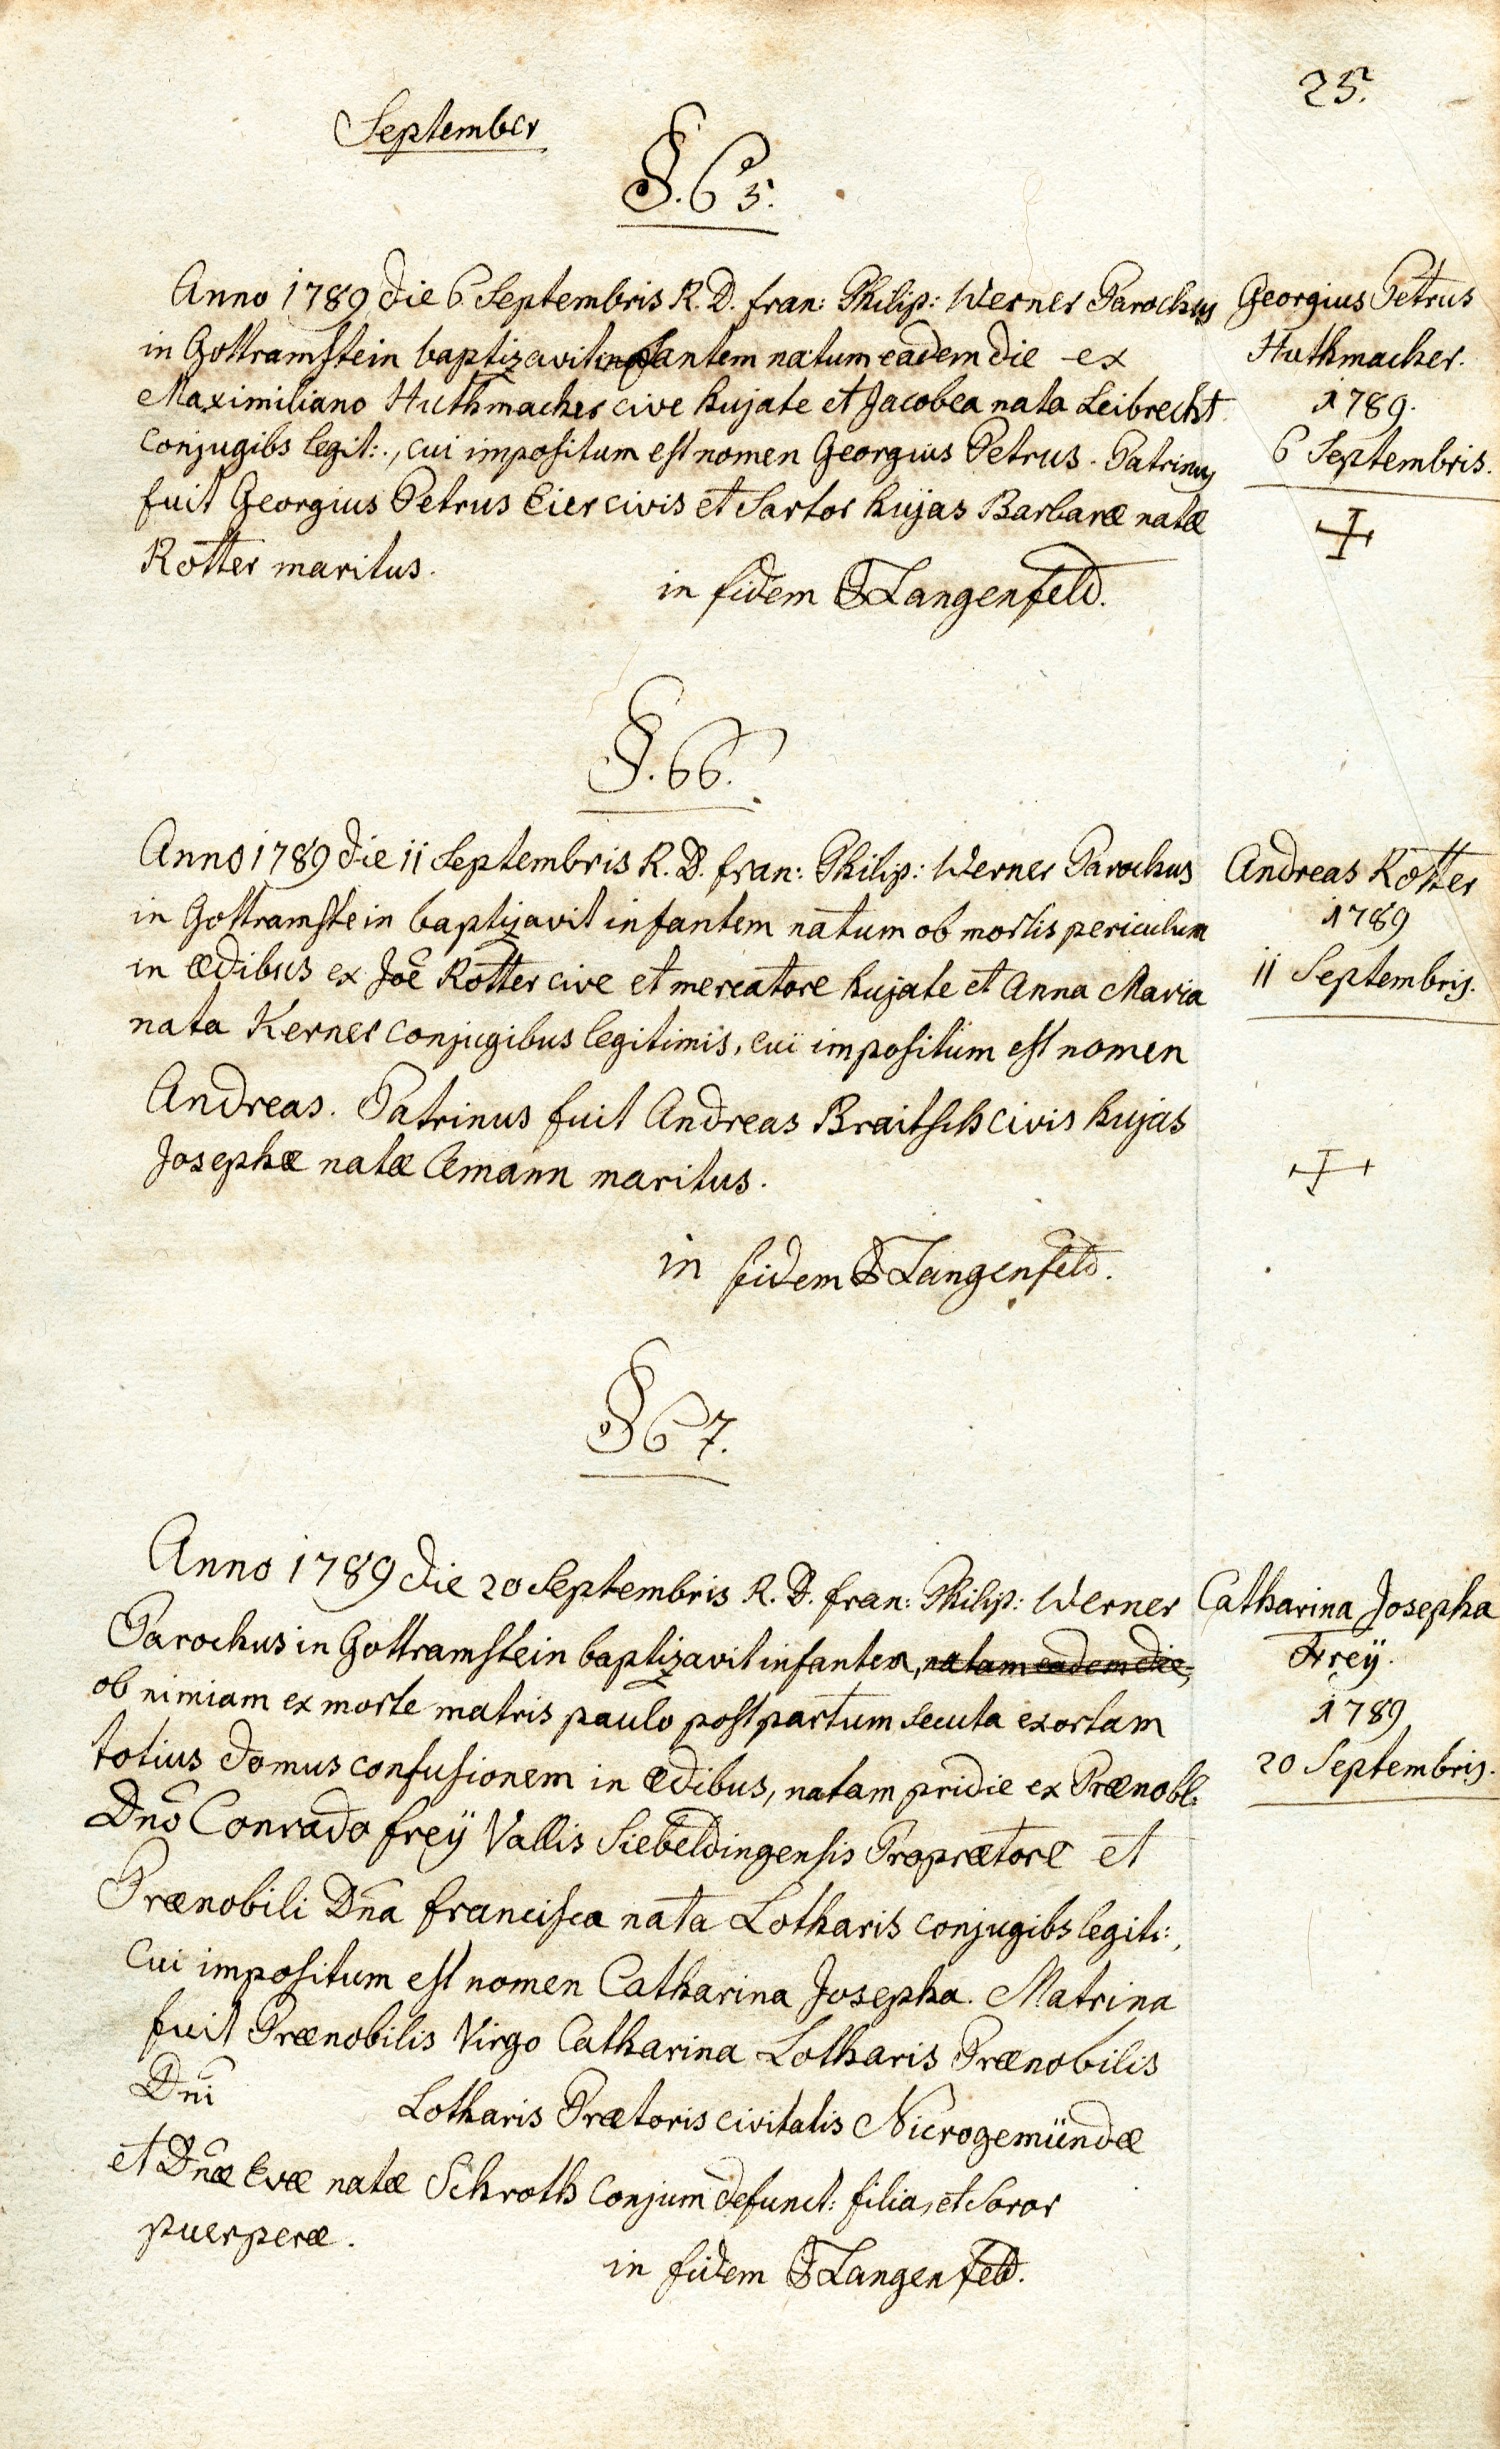 25.
September
§. 65.
Anno 1789 die 6 Septembris R. D. fran: Philip: Werner Parochus
in Gottramstein baptizavit infantem natum eadem die ex
Maximiliano Huthmacher cive hujate et Jacobea nata Leibrecht
conjugibs legit:., cui impositum est nomen Georgius Petrus. Patrinus
fuit Georgius Petrus Eier civis et Sartor hujas Barbaræ natæ
Rotter maritus.
in fidem Langenfeld.
Georgius Petrus
Huthmacher.
1789.
6 Septembris.
§. 66.
Anno 1789 die 11 Septembris R. D. fran: Philip: Werner Parochus
in Gottramstein baptizavit infantem natum ob mortis periculum
in ædibus ex Joē Rotter cive et mercatore hujate et Anna Maria
nata Kerner conjugibus legitimis, cui impositum est nomen
Andreas. Patrinus fuit Andreas Braitsch civis hujas
Josephæ natæ Amann maritus.
in fidem Langenfeld.
Andreas Rotter
1789
11 Septembris.
§ 67.
Anno 1789 die 20 Septembris R. D. fran: Philip: Werner
Parochus in Gottramstein baptizavit infantem, natam eadem die,
ob nimiam ex morte matris paulo post partum secuta exortam
totius domus confusionem in ædibus, natam pridie ex Prænobl:
Dnō Conrado frey Vallis Siebeldingensis Proprætore et
Prænobili Dn̄a francisca nata Lotharis conjugibs legiti:,
cui impositum est nomen Catharina Josepha. Matrina
fuit Prænobilis Virgo Catharina Lotharis Prænobilis
Dn̄i Lotharis Prætoris civitatis Nicrogemündæ
et Dn̄æ Evæ natæ Schroth conjum defunct: filia, et Soror
puerperæ.
in fidem Langenfeld.
Catharina Josepha
Frey.
1789
20 Septembris.